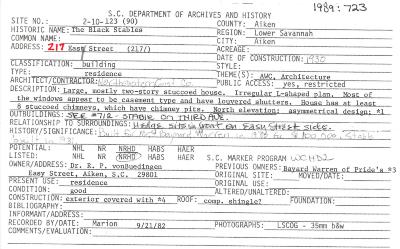 1989: 723
S.C. DEPARTMENT OF ARCHIVES AND HISTORY
SITE NO.: 2-10-123 (90) COUNTY: Aiken
HISTORIC NAME: The Black Stables REGION: Lower Savannah
COMMON NAME: CITY: Aiken
ADDRESS: 217 East Street (217/) ACREAGE:
DATE OF CONSTRUCTION: 1930
CLASSIFICATION: building STYLE:
TYPE: residence THEME(S): AWC, Architecture
ARCHITECT/CONTRACTOR: PUBLIC ACCESS: yes, restricted
DESCRIPTION: Large, mostly two-story stuccoed house. Irregular L-shaped plan. Most of
the windows appear to be casement type and have louvered shutters. House has at least
8 stuccoed chimneys, which have chimney pits. North elevation: asymmetrical design: #1
OUTBUILDINGS: SEE #712 - STABLE ON THIRD AVE.
RELATIONSHIP TO SURROUNDINGS: Hedge sits in front on Easy Street side.
HISTORY/SIGNIFICANCE: Built for Bayard Warren in
POTENTIAL: NHL NR NRHD HABS HAER
LISTED: NHL NR NRHD HABS HAER S.C. MARKER PROGRAM WCHD2
OWNER/ADDRESS: Dr. R. P. vonBuedingen PREVIOUS OWNER: Bayard Warren of Pride's #3
Easy Street, Aiken, S.C. 29801 ORIGINAL SITE: MOVED/DATE:
PRESENT USE: residence ORIGINAL USE:
CONDITION: good ALTERED/UNALTERED:
CONSTRUCTION: exterior covered with #4 ROOF: comp. shingle? FOUNDATION:
BIBLIOGRAPHY:
INFORMANT/ADDRESS:
RECORDED BY/DATE: Marion 9/21/82 PHOTOGRAPHS: LSCOG - 35mm b&w
COMMENTS/EVALUATION: